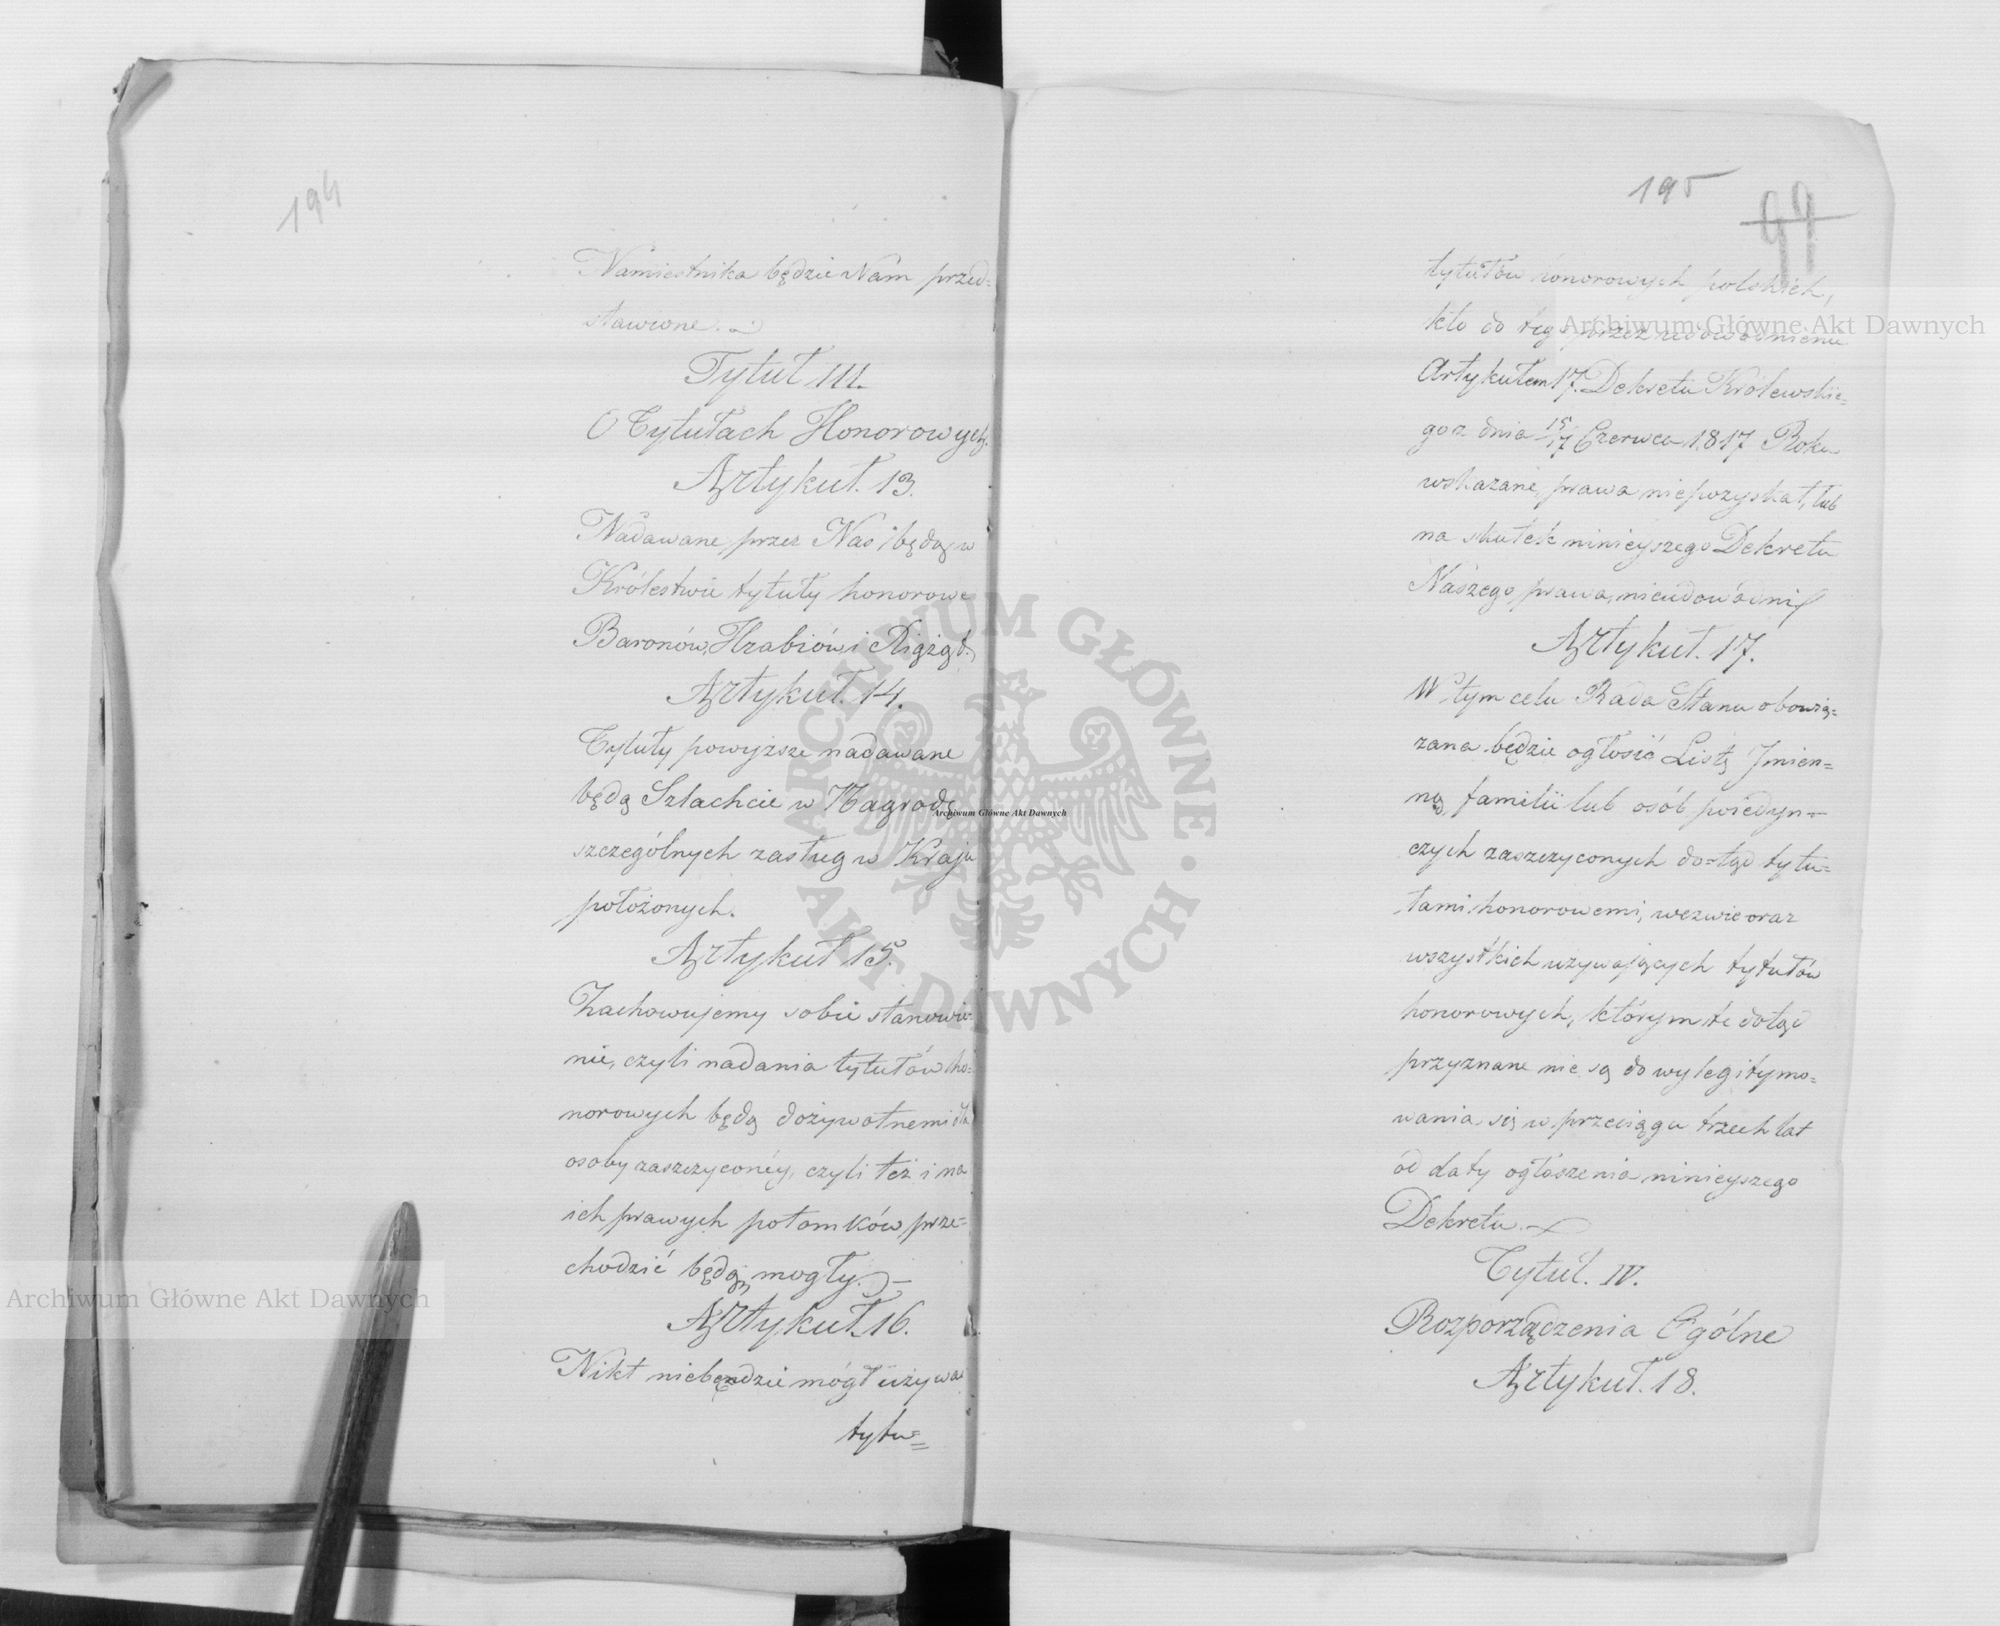 194
Namiestnika będzie Nam przed=
stawione.
Tytuł III.
O Tytułach Honorowych.
Artykuł. 13.
Nadawane przez Nas będą w
Królestwie tytuły honorowe
Baronów, Hrabiów i Xiążąt.
Artykuł. 14.
Tytuły powyższe nadawane
będą Szlachcie w Nagrodę
szczególnych zasług w Kraju
położonych.
Artykuł 15.
Zachowujemy sobie stanowie=
nie, czyli nadania tytułów ho=
norowych będą dożywotnemi dla
osoby zaszczyconéy, czyli też i na
ich prawych potomków prze=
chodzić będą mogły.
Artykuł. 16.
Nikt niebendzie mógł używać
tytu=
195
99
tytułów honorowych polskich,
kto do tego przez udowodnienie
Artykułem 17. Dekretu Królewskie=
go z dnia 15/17 Czerwca 1817 Roku
wskazane, prawa niepozyskał, lub
na skutek ninieyszego Dekretu
Naszego prawa, nieudowodni
Artykuł. 17.
W tym celu Rada Stanu obowią=
zana będzie ogłosić Listę Jmien=
ną familii lub osób poiedyn=
czych zaszczyconych do=tąd tytu=
łami honorowemi, wezwie oraz
wszystkich używających tytułów
honorowych, którym te dotąd
przyznane nie są do wylegitymo=
wania się w przeciągu trzech lat
od daty ogłoszenia ninieyszego
Dekretu.
Tytuł. IV.
Rozporządzenia Ogólne
Artykuł. 18.
Archiwum Główne Akt Dawnych
Archiwum Główne Akt Dawnych
Archiwum Główne Akt Dawnych
ARCHIWUM GŁÓWNE • AKT DAWNYCH •